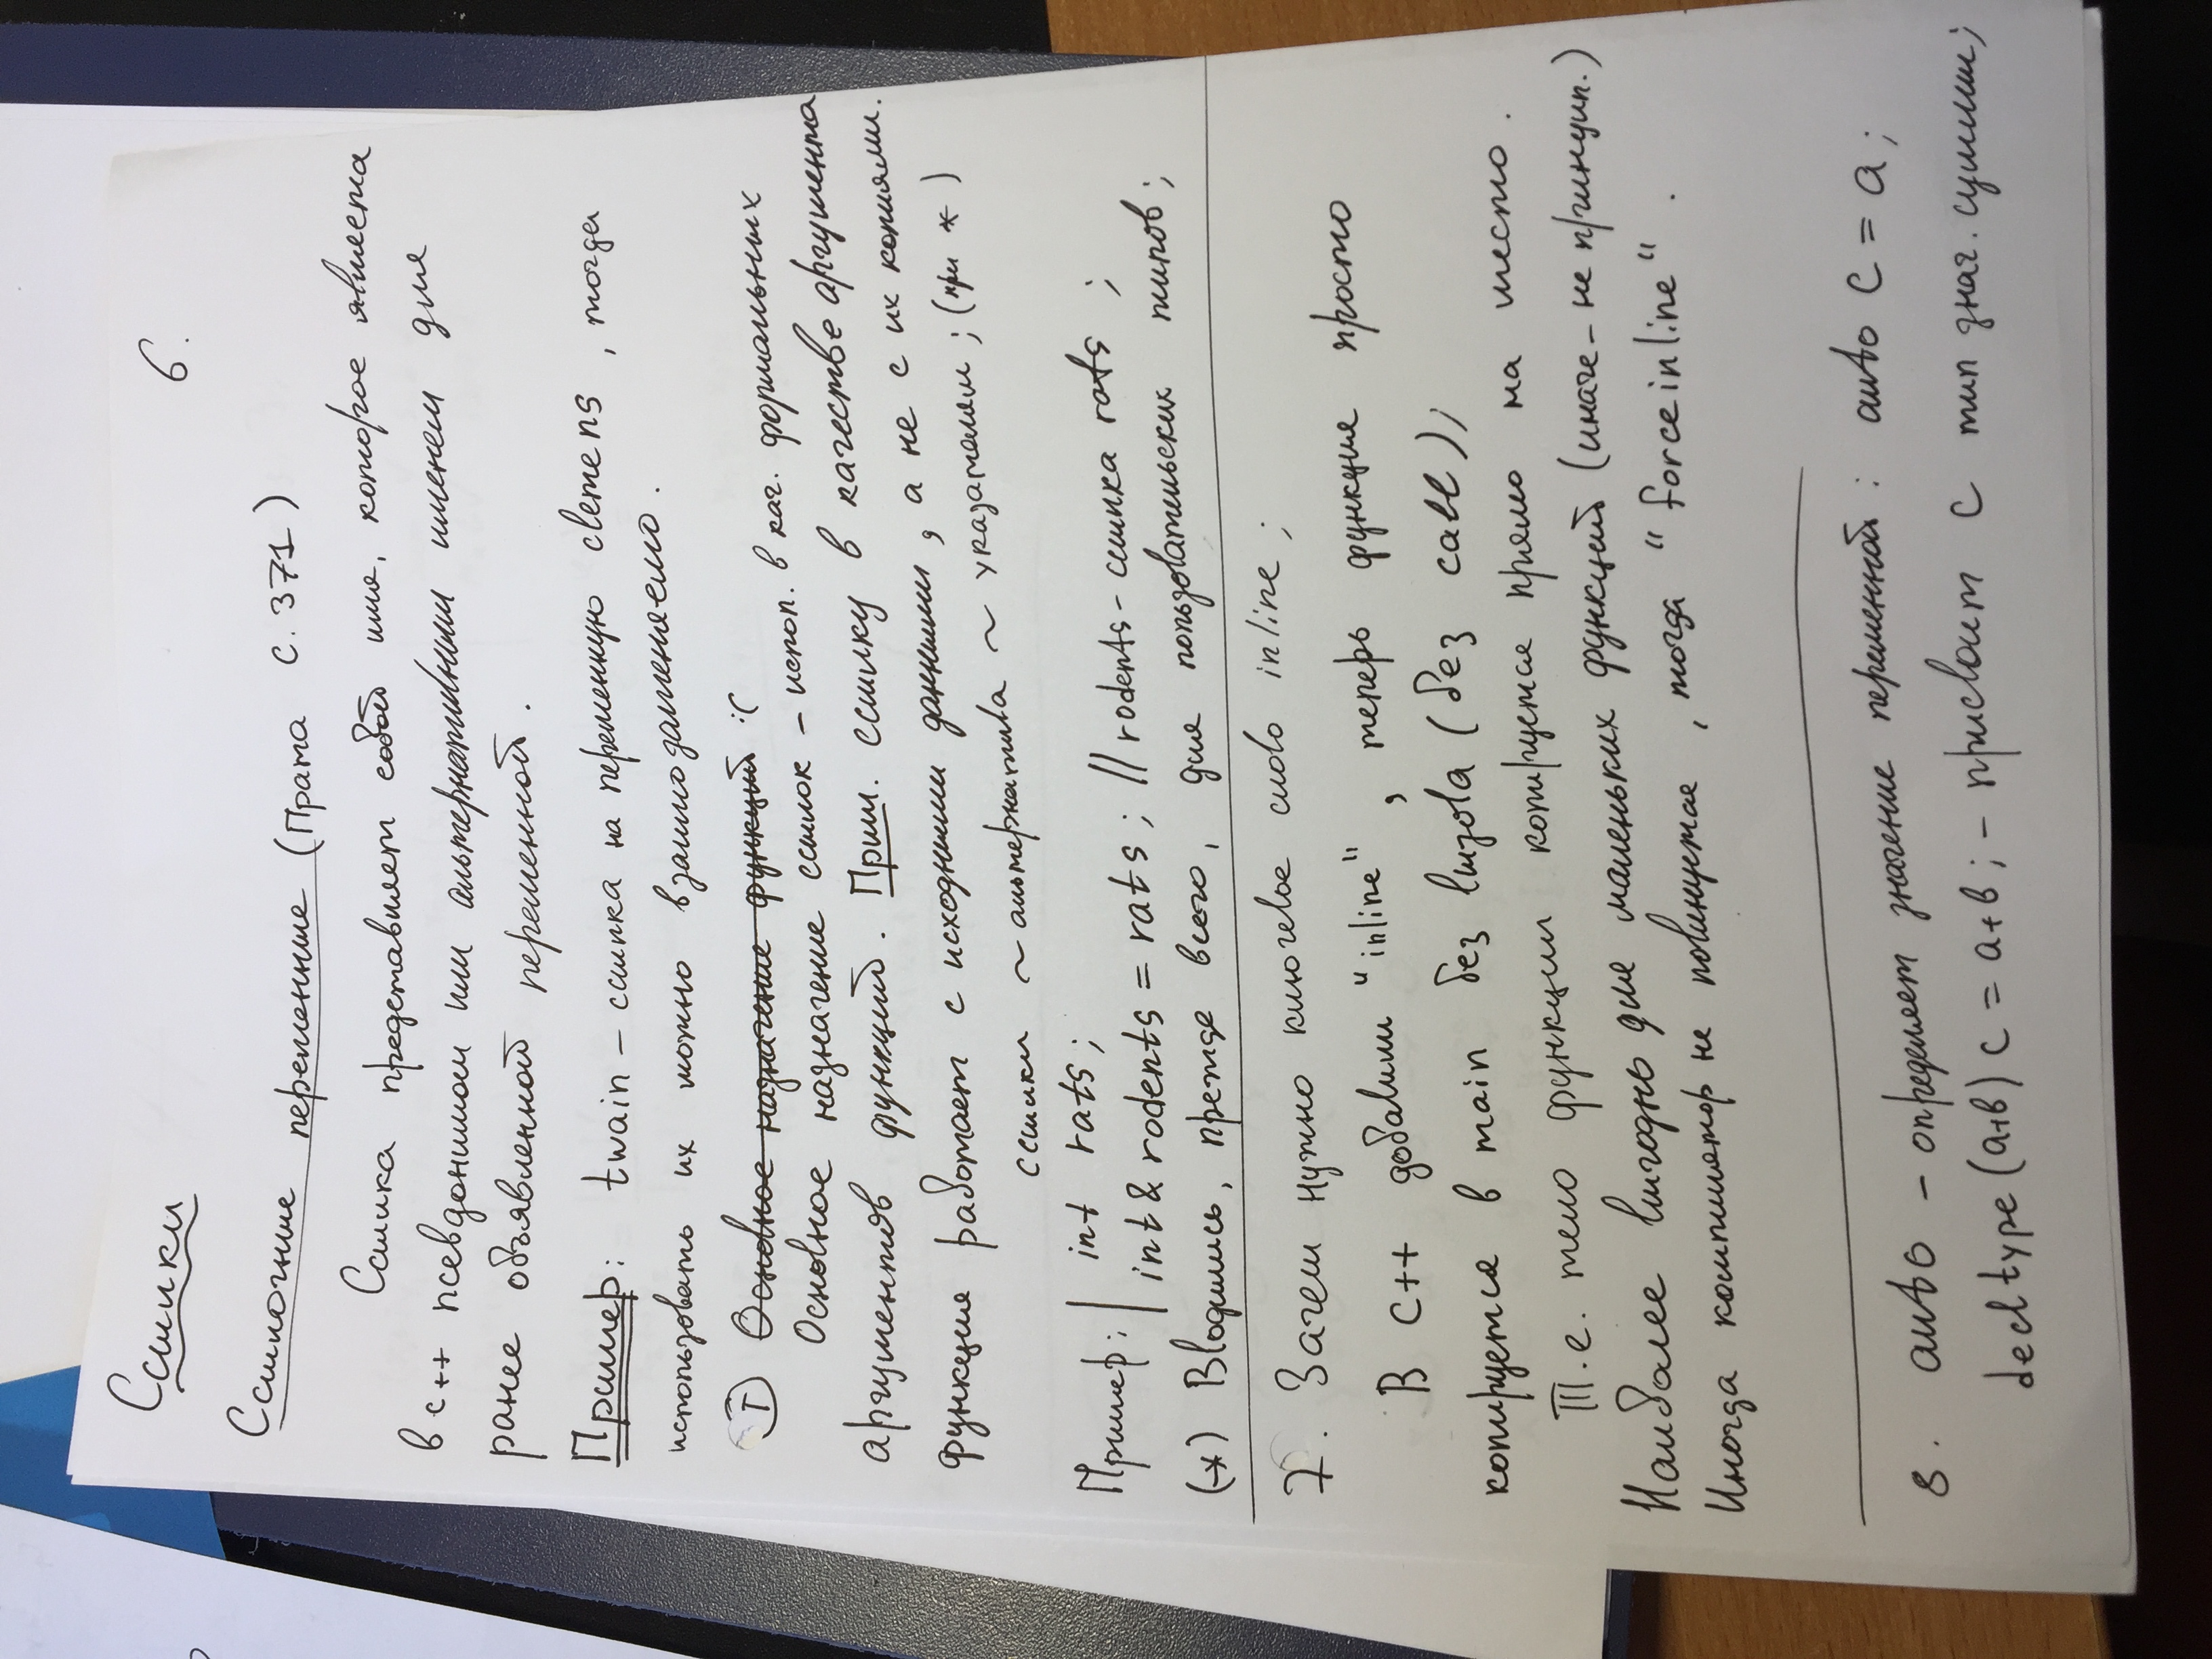 Ссылки
6.
Ссылочные переменные (Прата с. 371)
Ссылка представляет собой имя, которое является
в с++ псевдонимом или альтернативным именем для
ранее объявленной переменной.
Пример: twain – ссылка на переменную clemens, тогда
использовать их можно взаимозаменяемо.
I Основное назначение функций :(
Основное назначение ссылок – испол. в кач. формальных
аргументов функций. Прим. ссылку в качестве аргумента
функция работает с исходными данными, а не с их копиями.
ссылки ~ альтернатива ~ указателям; (при *)
Пример: int rats;
int & rodents = rats; // rodents - ссылка rats ;
(*) Вводились, прежде всего, для пользовательских типов;
7. Зачем нужно ключевое слово inline;
В С++ добавили "inline", теперь функция просто
копируется в main без вызова (без call);
Т.е. тело функции копируется прямо на место.
Наиболее выгодны для маленьких функций (иначе – не принцип.)
Иногда компилятор не повинуется, тогда "forceinline".
8. auto – определяет значение переменной: auto c = a;
decltype (a+b) c = a+b; – присвоит c тип знач. суммы;